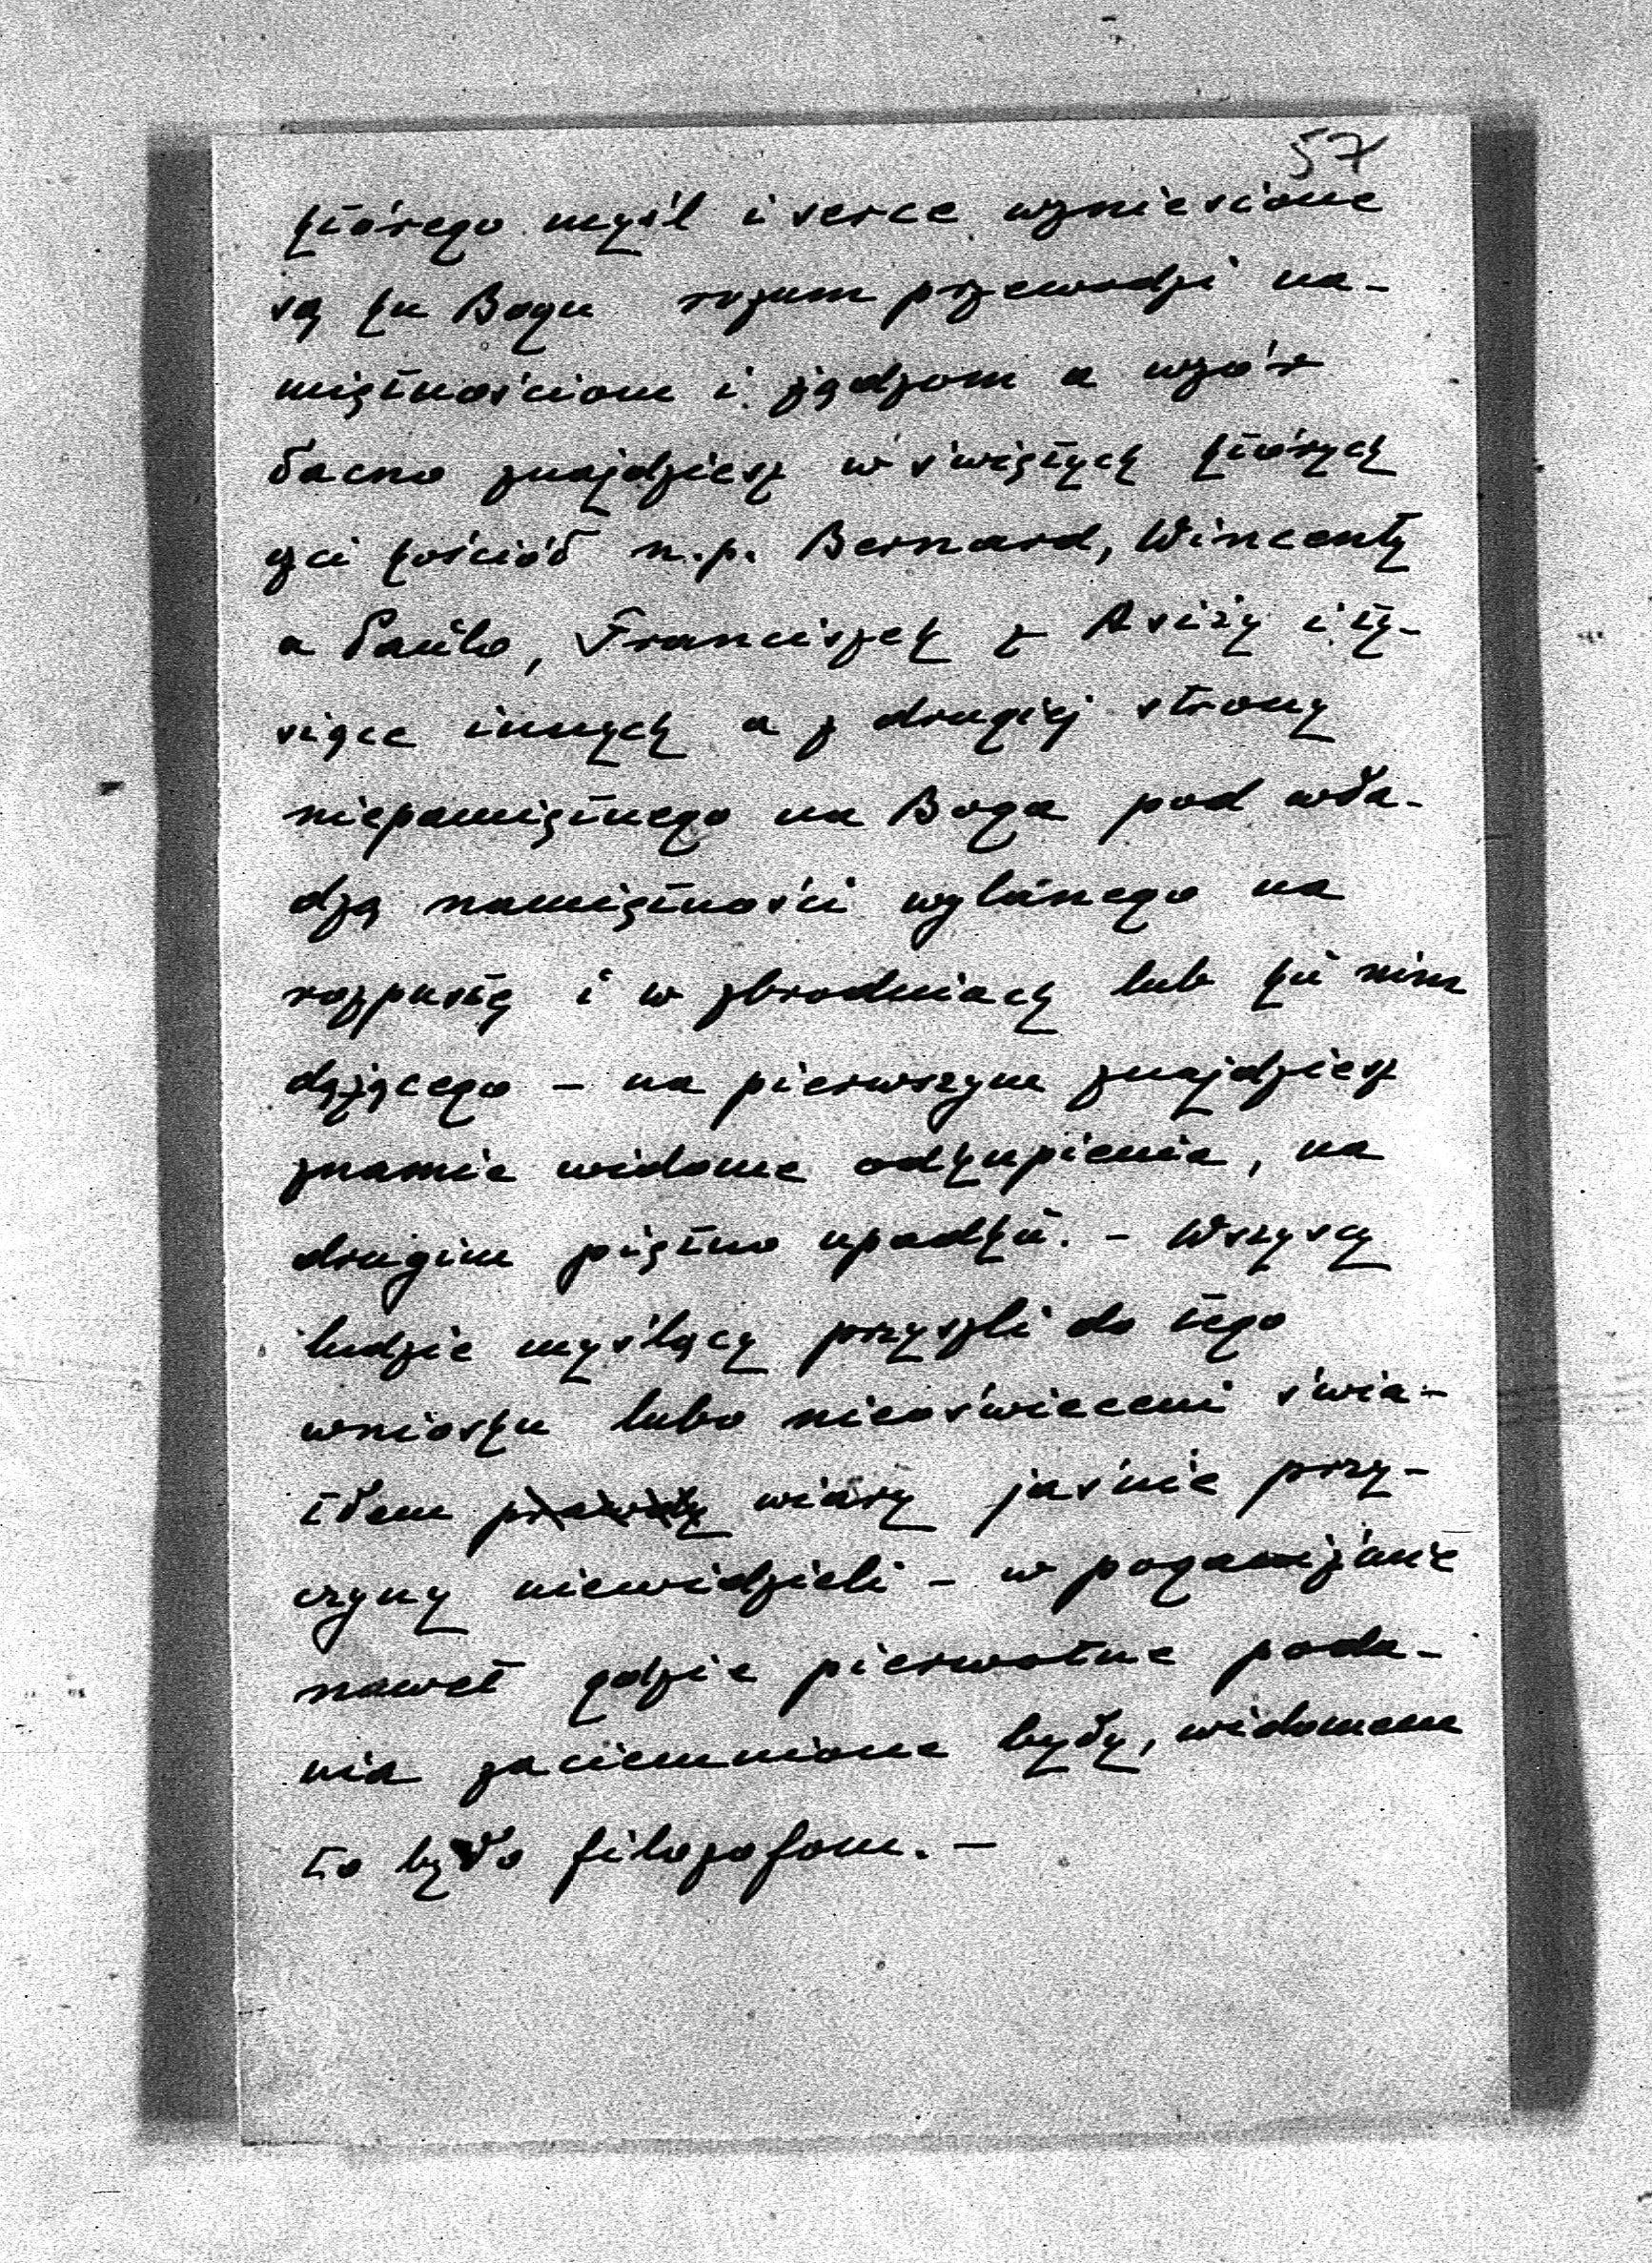 57
którego myśl i serce wzniesione
są ku Bogu rozum przewodzi na-
miętnościom i żądzom a wzór
łacno znajdziesz w świętych których
czci kościół n.p. Bernard, Wincenty
a Paulo, Franciszek z Asiży i ty-
siące innych a z drugiej strony
niepamiętnego na Boga pod wła-
dzą namiętności wylanego na
rozpustę i w zbrodniach lub ku nim
dążącego – na pierwszym znajdziesz
znamie widome odkupienia, na
drugim piętno upadku. – Wszyscy
ludzie myślący przyszli do tego
wniosku lubo nieoświeceni świa-
tłem prawdy wiary jaśnie przy-
czyny niewidzieli – w poganiźmie
nawet gdzie pierwotne poda-
nia zaciemnione były, widomem
to było filozofom. –